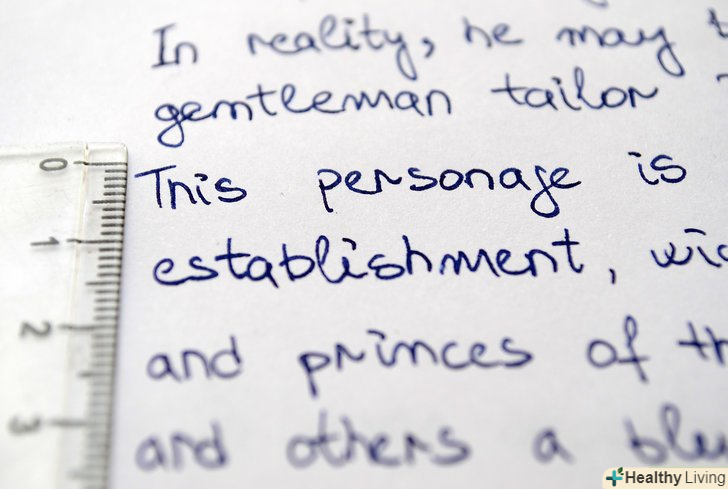 In reality, he may
gentleman tailor
This personage is
establishment,
and princes of
and others a
0
1
2
3
Healthy Living